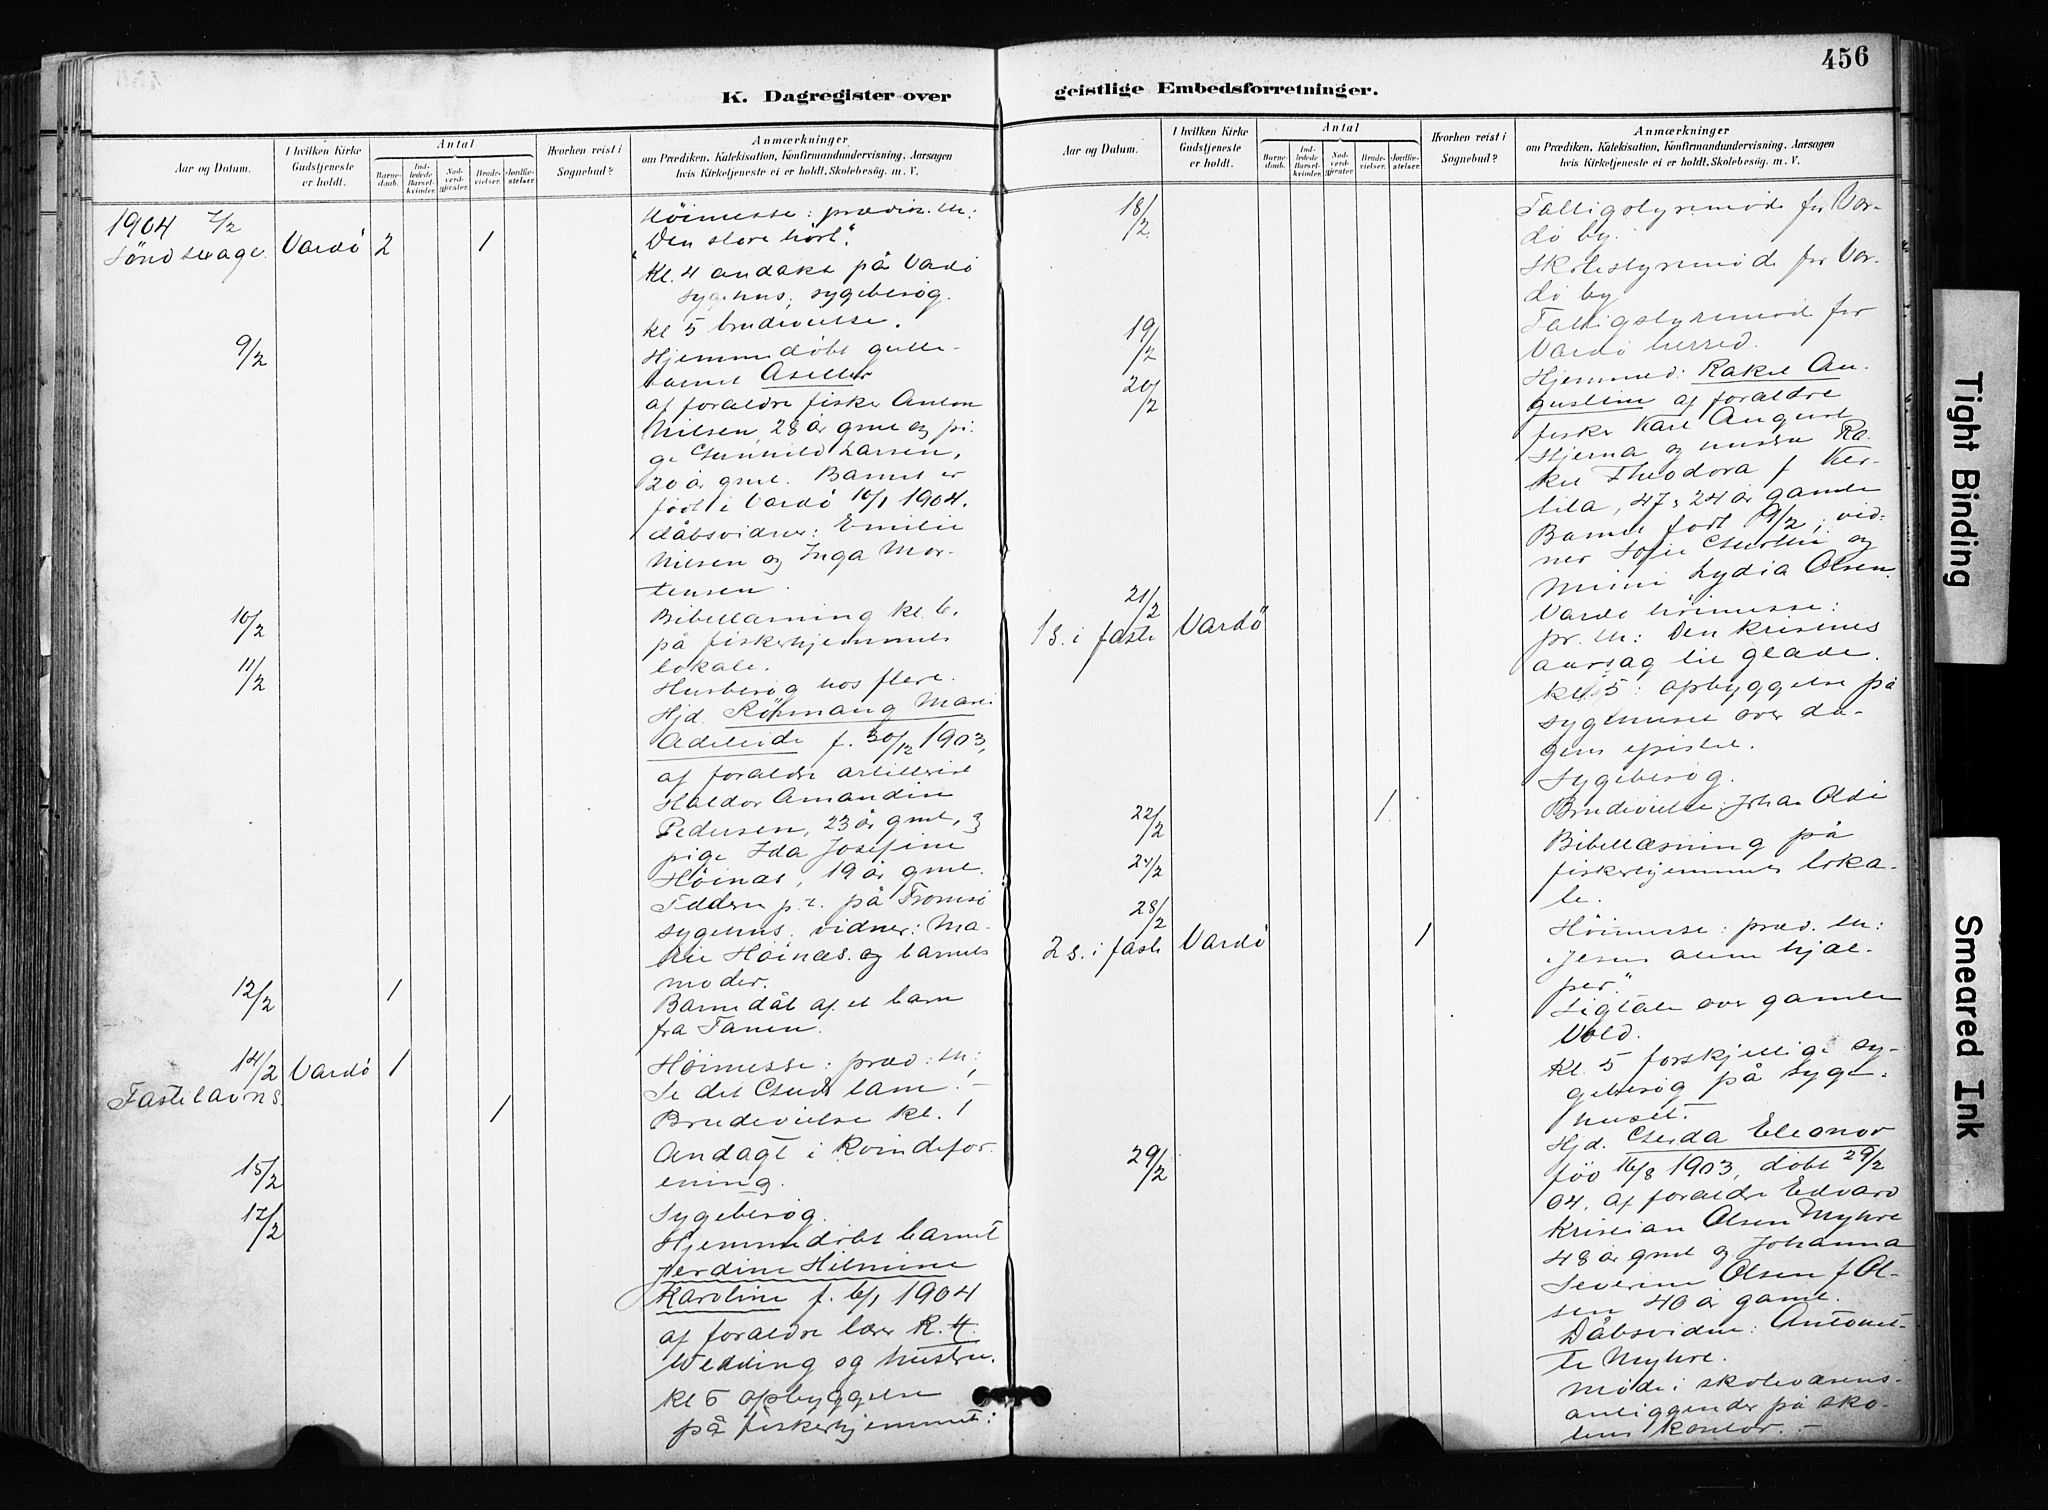 456
K. Dagregister over geistlige Embedsforretninger.
Aar og Datum.
I hvilken Kirke Gudstjeneste er holdt.
Antal
Barnedaab.
Indledede Barselkvinder.
Nødverdgjester.
Brudevielser.
Jordfæstelser.
Hvorhen reist i Sognebud?
Anmærkninger
om Prædiken, Katekisation, Konfirmandundervisning, Aarsagen
hvis Kirketjeneste ei er holdt. Skolebesøg. m. V.
1904 7/2
Sønd sexage. Vardö 2 1
Höimesse: prædik. th:
"Den store hört".
Kl. 4 andakt på Vardö
sygehus, sygebesög.
kl 5 brudevielse.
9/2 Hjemmedöbt gutte-
barnet
af forældre fisker Anton
Nilsen, 28 år gml og pi-
ge Gunnild Larsen,
20 år gml. Barnet er
födt i Vardö 10/1 1904.
dåbsvidner: Emilie
Nilsen og Inga Mor-
tensen.
10/2 Bibellæsning kl. 6.
på fiskerhjemmets
lokale.
11/2 Husbesög hos flere.
Hjd. Mari
Adeleide f. 30/12 1903,
af forældre artillerist
Haldor Amandin
Pedersen, 23 år gml, og
pige Ida Josefine
Höinæs, 19 år gml.
Fadderen p. t. på Tromsö
sygehus, vidner: Ma-
rie Höinæs og barnets
moder.
12/2 1 Barnedåb af et barn
fra Tanen.
14/2 Vardö 1
Fastelavns. 1
Höimesse: præd. th:
Se det Guds lam! -
Brudevielse kl. 1
Andagt i kvindefor-
ening.
15/2 Sygebesög.
17/2 Hjemmedöbt barnet
Ferdine Hilmine
Karoline f. 6/1 1904
af forældre lærer K. H.
Wedding og hustru.
Kl 6 opbyggelse
på fiskerhjemmet:
Aar og Datum.
I hvilken Kirke Gudstjeneste er holdt.
Antal
Barnedaab.
Indledede Barselkvinder.
Nadverdgjester.
Brudevielser.
Jordfæstelser.
Hvorhen reist i Sognebud?
Anmærkninger
om Prædiken, Katekisation, Konfirmandundervisning, Aarsagen
hvis Kirketjeneste ei er holdt. Skolebesøg. m. V.
18/2 Fattigstyremöde for Var-
dö by.
Skolestyremöde for Var-
dö by
19/2 Fattigstyremöd for
Vardö herred.
20/2 Hjemmed: Rakel Au-
gustine af forældre
fisker Karl August
Hjerna og hustru Ra-
kel Theodora f
47 & 24 år gamle
Barnet födt 19/2; vid-
ner Sofie og
Mimi Lydia Olsen.
21/2
1 s. i faste Vardö
Vardö höimesse:
pr. th: Den kristnes
aarsag til glæde.
kl. 5: opbyggelse på
sygehuset over da-
gens epistel.
Sygebesög.
22/2 1 Brudevielse: Johan
24/2 Bibellæsning på
fiskerhjemmets loka-
le.
28/2
2 s. i faste Vardö 1
Höimesse: præd. th:
"Jesus alene hjæl-
per."
Ligtale over gamle
Vold.
Kl. 5 forskjellige sy-
gebesög på syge-
huset.
29/2 Hjd. Gerda Eleonor
föd 16/8 1903, döbt 29/2
04, af forældre Edvard
Kristian Olsen Myhre
48 år gml og Johanna
Severine Olsen f Ol-
sen 40 år gaml.
Dåbsvidne: Antonet-
te Myhre.
Möde i skolevæsens-
anliggender på sko-
lens kontor. -
Tight Binding
Smeared Ink